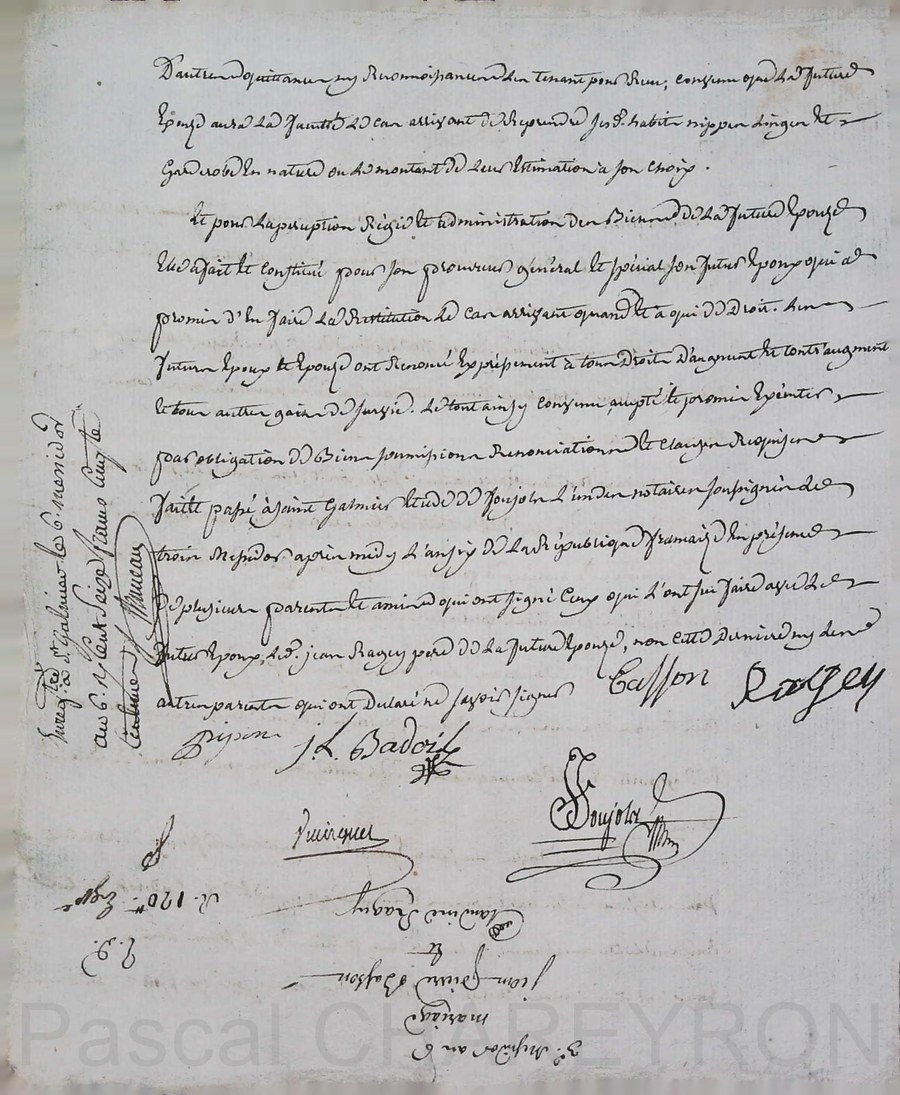 D'autres quittances ny Reconnoissances Les tenant pour Reçu, convenu que La d. future
Epouse aura La faculté Le cas arrivant de Reprendre ses d. habits nippes Linges et
Garderobe En nature ou Le montant de Leur Estimation à son choix.
Et pour La perception Régie et administration des Biens de La future Epouse
Elle a fait et Constitué pour son procureur général et spécial son futur Epoux qui a
promis d'En faire La Restitution Le cas arrivant quand et à qui de Droit. Les
futurs Epoux et Epouse ont Renoncé Expressement à tous Droits D'augment et contraugment
et tous autres gains de survie. Le tout ainsy convenu, accepté et promis Exécuter
par obligation de Biens soumissions Renonciations et clauses Requises
fait et passé à Saint Galmier Etude de Soujols L'un des notaires soussignés Le
trois Messidor après midy L'an six de La République française En présence
de plusieurs parents et amis qui ont signé Ceux qui L'ont sçu faire avec Le
futur Epoux, Le d. jean Ragey pere de La future Epouse, non cette Dernière ny Les
autres parents qui ont Déclaré ne savoir signer
Basson
Ragey
J. L. Badoil
Soujols
Enregistré à St Galmier le 6. messidor
an 6. Reçu Seize francs
R. 120
Claudine Ragey
Et
jean pierre Basson
mariage
3e. Messidor an 6
Pascal CHAPEYRON